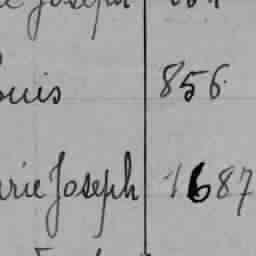 Joseph
ouis 856.
rie Joseph 1687